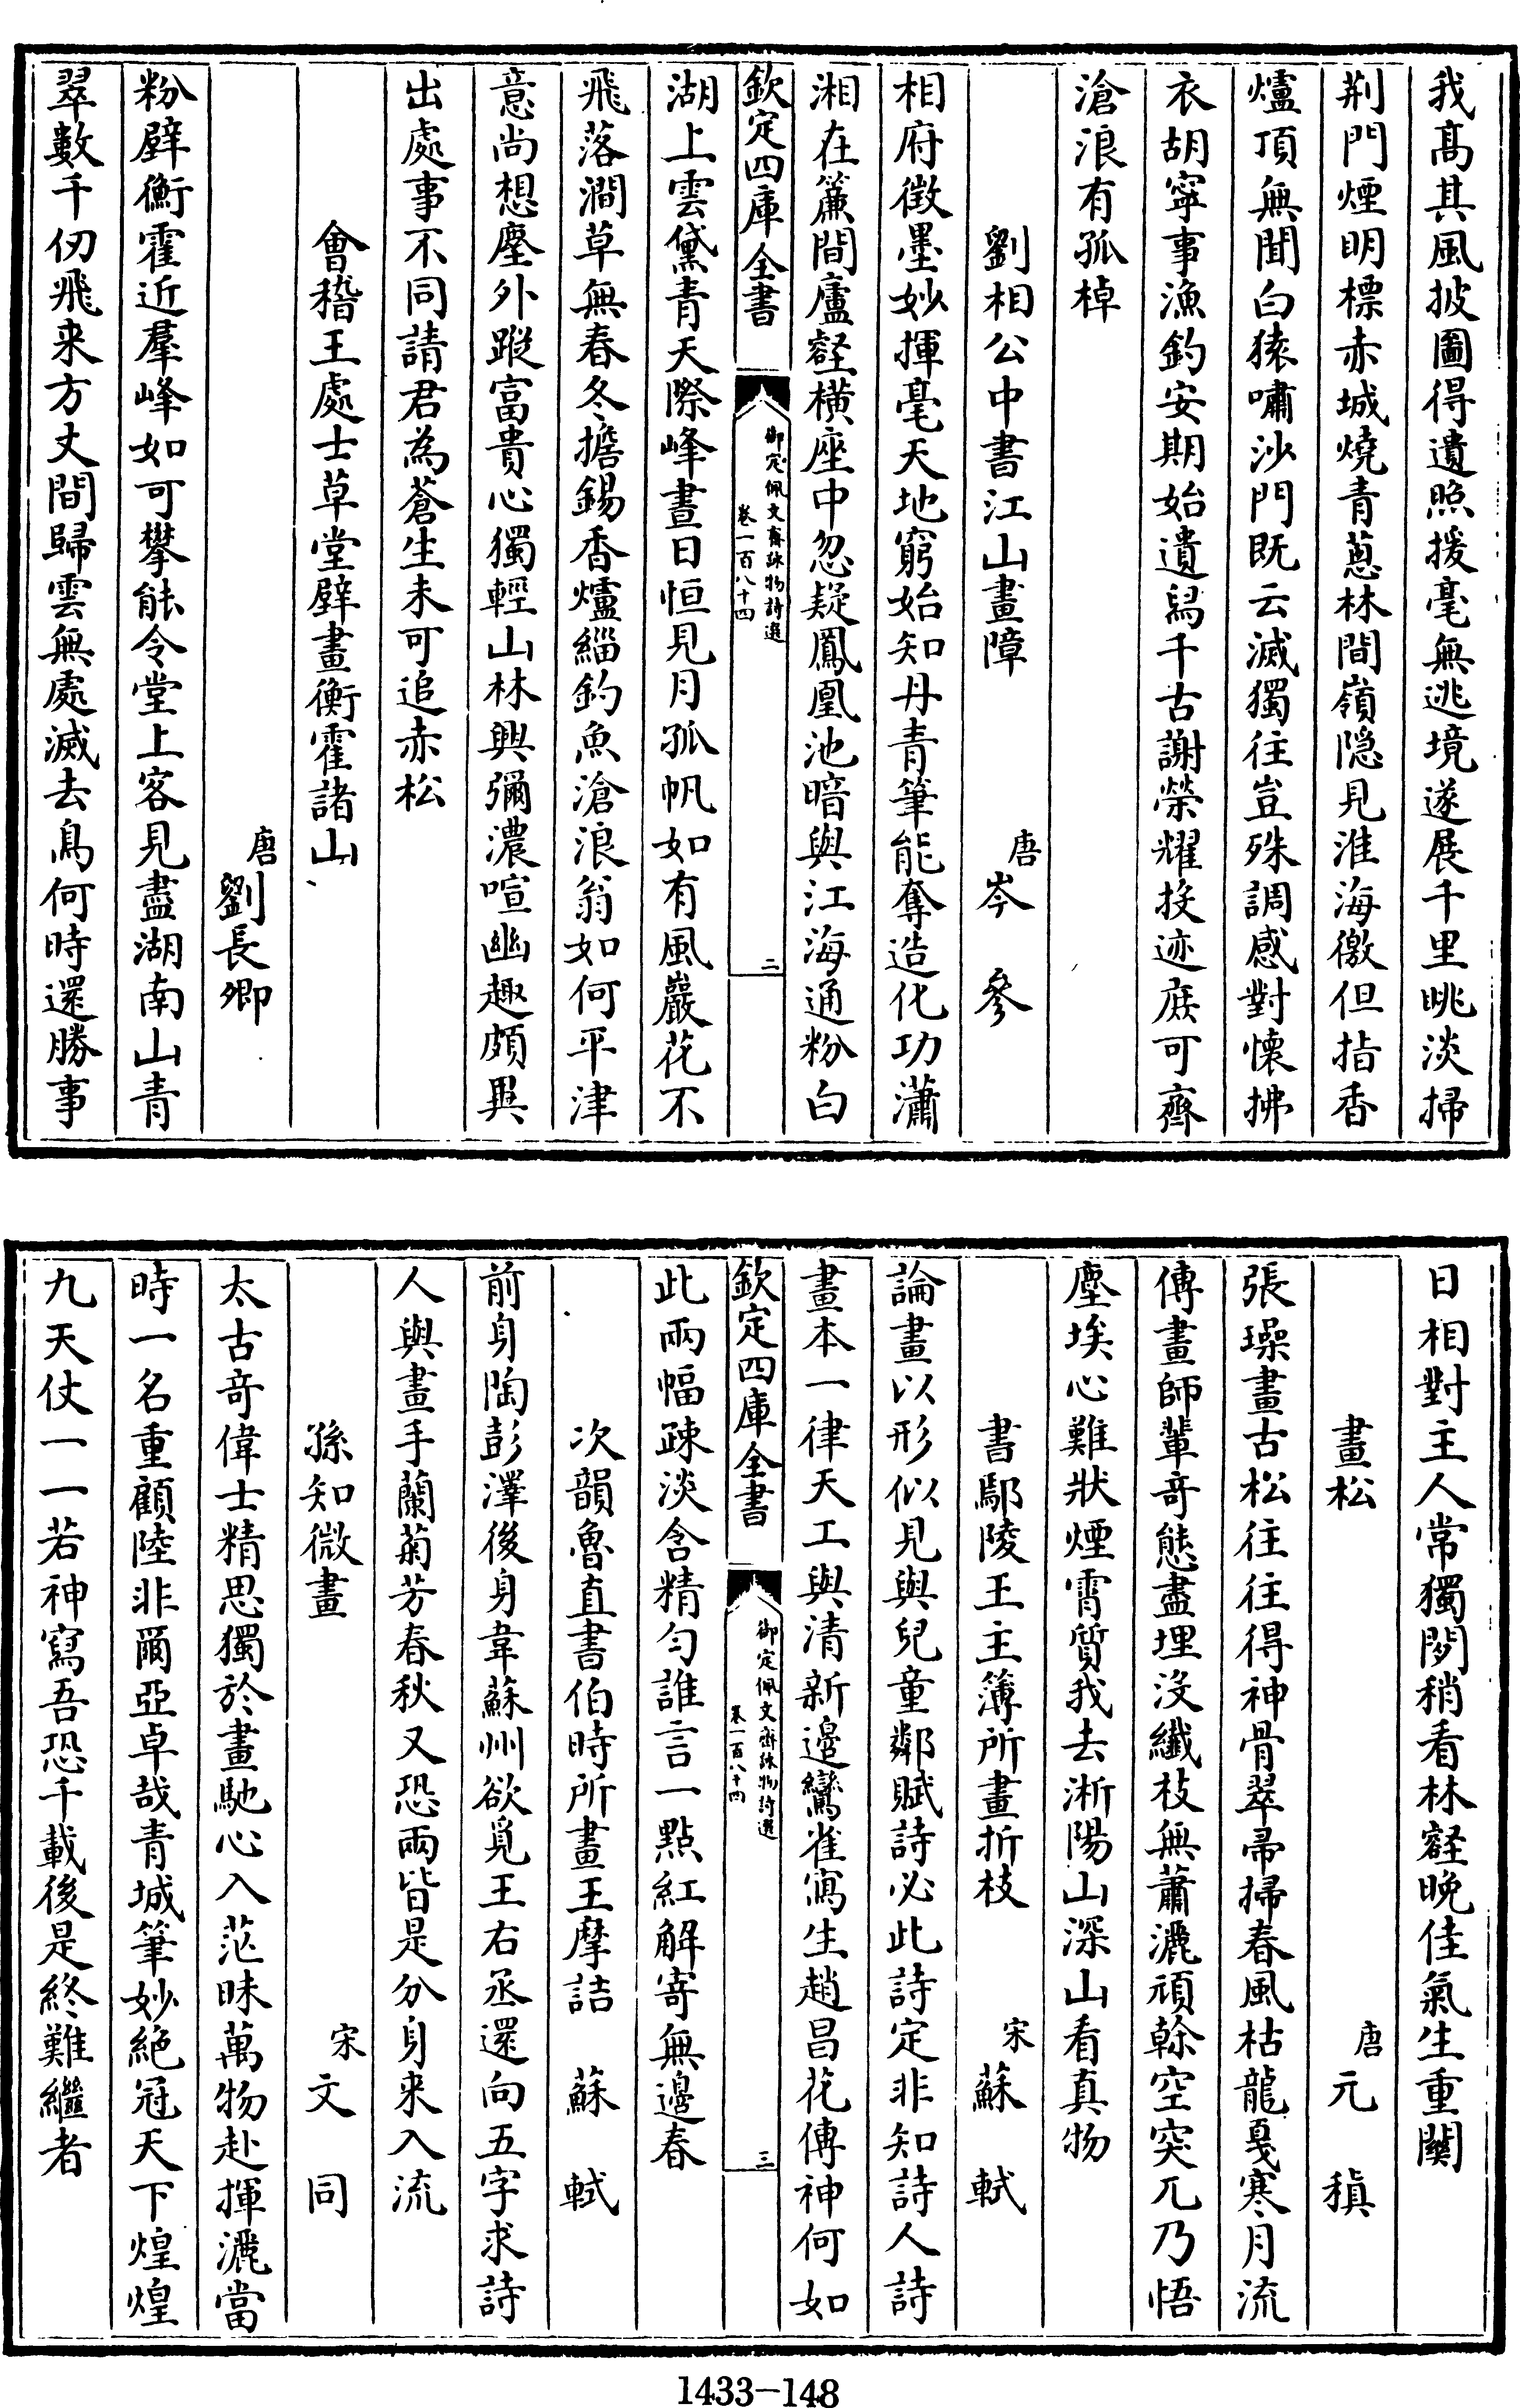 我髙其風披圖得遺照援毫無逃境遂展千里眺淡掃
荆門煙明標赤城燒青蔥林間嶺隠見淮海徼但指香
爐頂無聞白猿嘯沙門既云滅獨往豈殊調感對懷拂
衣胡寧事漁釣安期始遺舄千古謝榮耀投迹庶可齊
滄浪有孤棹
劉相公中書江山畫障
唐岑參
相府徵墨妙揮毫天地窮始知丹青筆能奪造化功瀟
湘在簾間廬壑横座中忽疑鳳凰池暗與江海通粉白
欽定四庫全書
御定佩文齋詠物詩選
卷一百八十四
二
湖上雲黛青天際峰晝日恒見月孤帆如有風巖花不
飛落澗草無春冬擔錫香爐緇釣魚滄浪翁如何平津
意尚想塵外蹤富貴心獨輕山林興彌濃喧幽趣頗異
出處事不同請君為蒼生未可追赤松
會稽王處士草堂壁畫衡霍諸山
唐劉長卿
粉壁衡霍近羣峰如可攀能令堂上客見盡湖南山青
翠數千仞飛来方丈間歸雲無處滅去鳥何時還勝事
日相對主人常獨閑稍看林壑晚佳氣生重關
畫松
唐元稹
張璪畫古松往往得神骨翠帚掃春風枯龍戛寒月流
傳畫師輩竒態盡埋沒纖枝無蕭灑頑榦空突兀乃悟
塵埃心難狀煙霄質我去淅陽山深山看真物
書鄢陵王主簿所畫折枝
宋蘇軾
論畫以形似見與兒童鄰賦詩必此詩定非知詩人詩
畫本一律天工與清新邉鸞雀寫生趙昌花傳神何如
欽定四庫全書
御定佩文齋詠物詩選
卷一百八十四
三
此兩幅疎淡含精匀誰言一點紅解寄無邉春
次韻魯直書伯時所畫王摩詰
蘇軾
前身陶彭澤後身韋蘇州欲覓王右丞還向五字求詩
人與畫手蘭菊芳春秋又恐兩皆是分身来入流
孫知微畫
宋文同
太古竒偉士精思獨於畫馳心入茫昧萬物赴揮灑當
時一名重顧陸非爾亞卓哉青城筆妙絶冠天下煌煌
九天仗一一若神寫吾恐千載後是終難繼者
1433-148